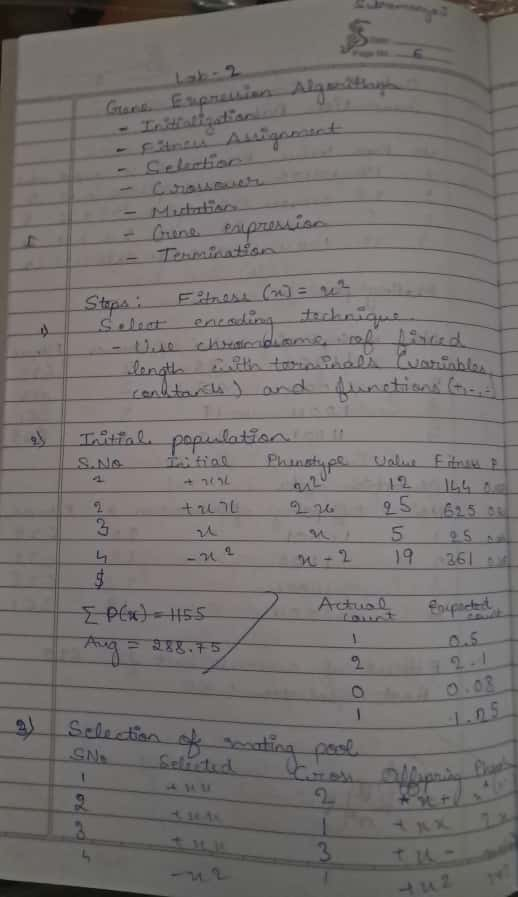 Lab-2
6
Gene Expression Algorithm
- Initialization
- Fitness Assignment
- Selection
- Crossover
- Mutation
- Gene expression
- Termination
Steps: Fitness (x) = x²
1) Select encoding technique.
- Use chromosome of fixed
length with terminals (variables,
constants) and functions (+,-,
2) Initial population
S.No Initial Phenotype Value Fitness P
1 +xx x² 12 144
2 +xx 2x 25 625
3 x x 5 25
4 -x2 x-2 19 361
5
Σ P(x) = 1155
Avg = 288.75
Actual count Expected count
1 0.5
2 2.1
0 0.08
1 1.25
3) Selection of mating pool
SNo Selected Cross Offspring
1 +xx 2
2 +xx 1 +xx 2x
3 +xx 3 +x-
4 -x2 1 +x2